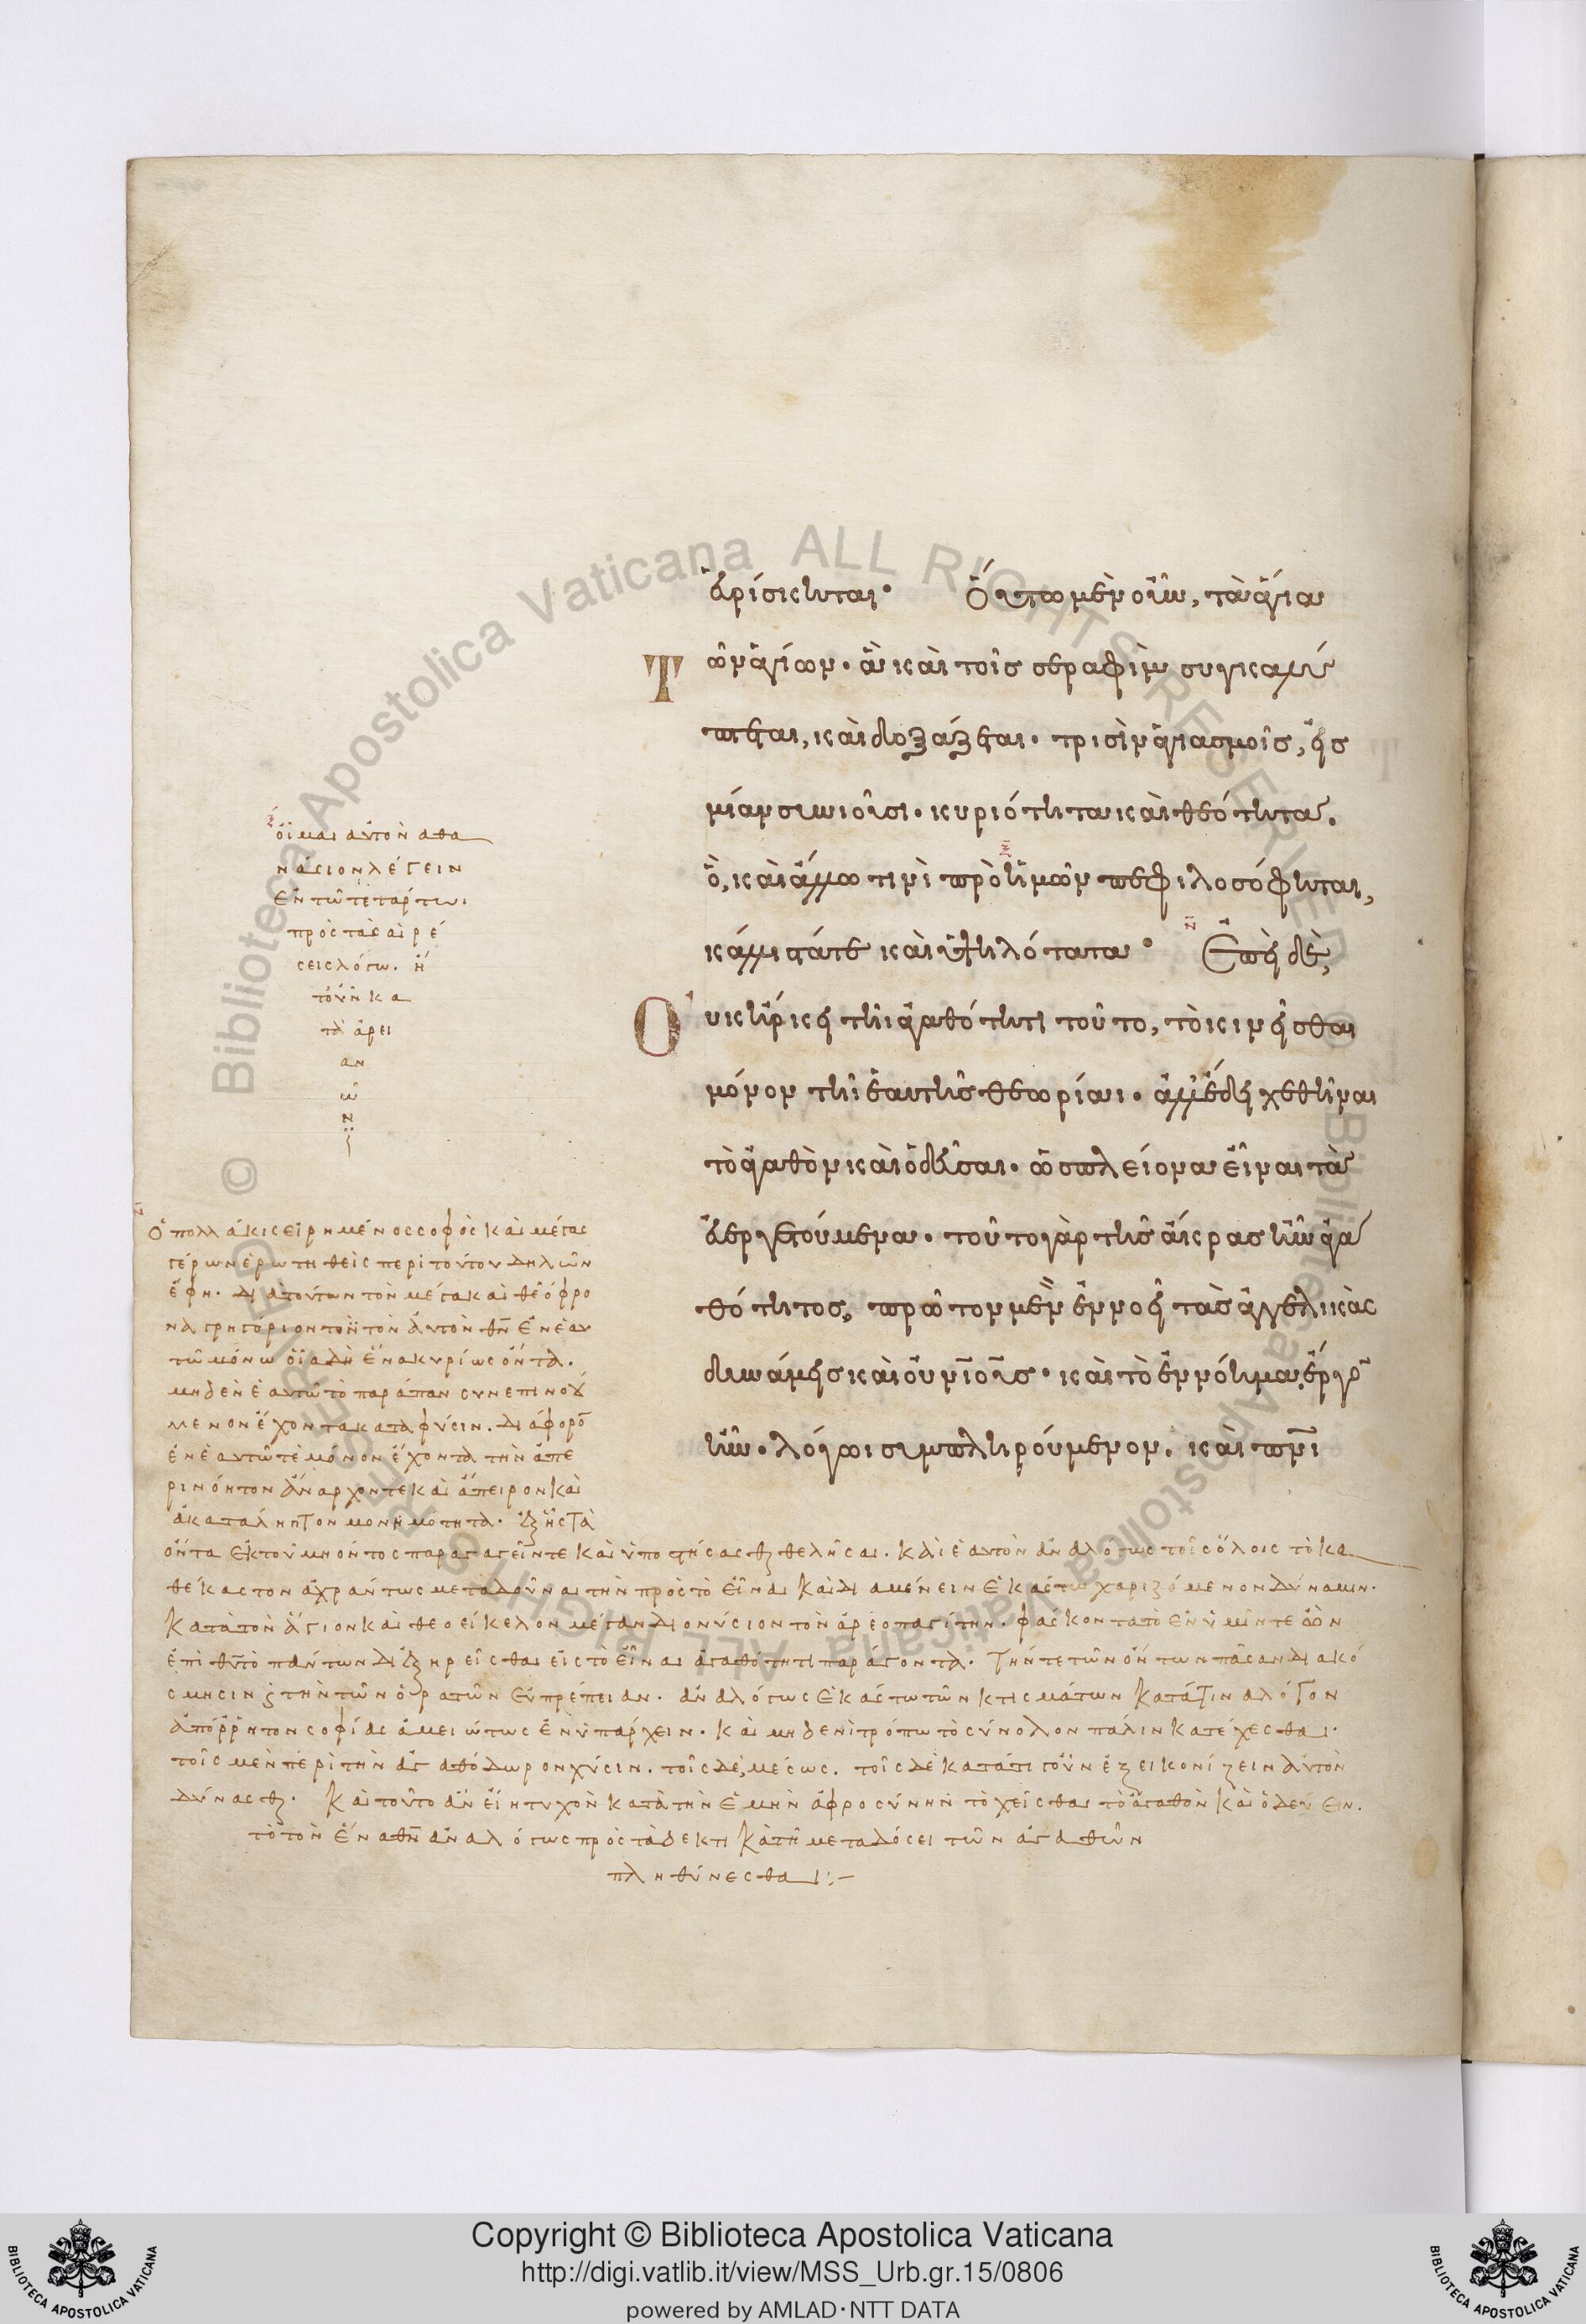 εὑρίσκηται· Οὕτω μὲν οὖν, τὰ ἅγια
τῶν ἁγίων· ἃ καὶ τοῖς σεραφὶμ συγκαλύ
πτεται, καὶ δοξάζεται· τρισὶν ἁγιασμοῖς, εἰς
μίαν συνιοῦσι· κυριότητα καὶ θεότητα.
ὃ, καὶ ἄλλω τινὶ πρὸ ἡμῶν πεφιλοσόφηται,
κάλλιστά τε καὶ ὑψηλότατα· Ἐπεὶ δὲ,
Οὐκ ἤρκει τῆι ἀγαθότητι τοῦτο, τὸ κινεῖσθαι
μόνον τῆι ἑαυτῆς θεωρίαι· ἀλλ' ἔδει χεθῆναι
τὸ ἀγαθὸν καὶ ὁδεῦσαι· ὡς πλείονα εἶναι τὰ
εὐεργετούμενα· τοῦτο γὰρ τῆς ἄκρας ἦν ἀγα
θότητος, πρῶτον μὲν ἐννοεῖ τὰς ἀγγελικὰς
δυνάμεις καὶ οὐνίους· καὶ τὸ ἐννόημα, ἔργον
ἦν· λόγωι συμπληρούμενον, καὶ πνι
οἶμαι αὐτὸν ἀθα
νάσιον λέγειν
ἐν τῶ τετάρτωι
πρὸς τὰς αἱρέ
σεις λόγω. ἢ
γοῦν κα
τὰ ἀρει
αν
ῶ
ν:
Ὁ πολλάκις εἰρημένος σοφὸς καὶ μέγας
γέρων ἐρωτηθεὶς περὶ τούτου δηλῶν
ἔφη· διὰ τούτων τὸν μέγα καὶ θεόφρο
να γρηγόριον
τῶ μόνω οἷα δὴ ἕνα κυρίως ὄντα.
μηδὲν ἑαυτῶ τὸ παράπαν συνεπινοού
μενον ἔχοντα κατὰ φύσιν. διάφορον
ἐν ἑαυτῶ τὲ μόνον ἔχοντα τὴν ἀπε
ρινόητον ἄναρχόν τε καὶ ἄπειρον καὶ
ἀκατάληπτον μονιμότητα. ἐξ ἧς τὰ
ὄντα ἐκ τοῦ μὴ ὄντος παραγαγεῖν τε καὶ ὑποστήσασθαι θελῆσαι. καὶ ἑαυτὸν ἀναλόγως τοῖς ὅλοις τὸ κα
θέκαστον ἀχράντως μεταδοῦναι τὴν πρὸς τὸ εἶναι καὶ διαμένειν ἑκάστω χαριζόμενον δύναμιν.
κατὰ τὸν ἅγιον καὶ θεοείκελον μέγαν διονύσιον τὸν ἀρεοπαγίτην. φάσκοντα τὸ ἓν ὑμνητέον
ἐπὶ θῦ τὸ πάντων
εἰς τὸ εἶναι ἀγαθότητι παράγοντα. τήν τε τῶν ὄντων πᾶσαν διακό
σμησιν καὶ τὴν τῶν ὁρατῶν εὐπρέπειαν. ἀναλόγως ἑκάστω τῶν κτισμάτων κατά τινα λόγον
ἀπόρρητον σοφίας ἀμειώτως ἐνυπάρχειν. καὶ μηδενὶ τρόπω τὸ σύνολον πάλιν κατέχεσθαι.
τοῖς μὲν περὶ τὴν ἀγαθόδωρον χύσιν. τοῖς δὲ, μέσως. τοῖς δὲ κατά τι γοῦν ἐξεικονίζειν αὐτὸν
δύνασθαι. καὶ τοῦτο ἂν εἴη τυχὸν κατὰ τὴν ἐμὴν ἀφροσύνην τὸ χεῖσθαι τὸ ἀγαθὸν καὶ ὁδεύειν.
τὸ τὸν ἕνα θν ἀναλόγως πρὸς τὰ δεκτικὰ τῆ μεταδόσει τῶν ἀγαθῶν
πληθύνεσθαι:-
Copyright © Biblioteca Apostolica Vaticana
http://digi.vatlib.it/view/MSS_Urb.gr.15/0806
powered by AMLAD·NTT DATA
BIBLIOTECA APOSTOLICA VATICANA
BIBLIOTECA APOSTOLICA VATICANA